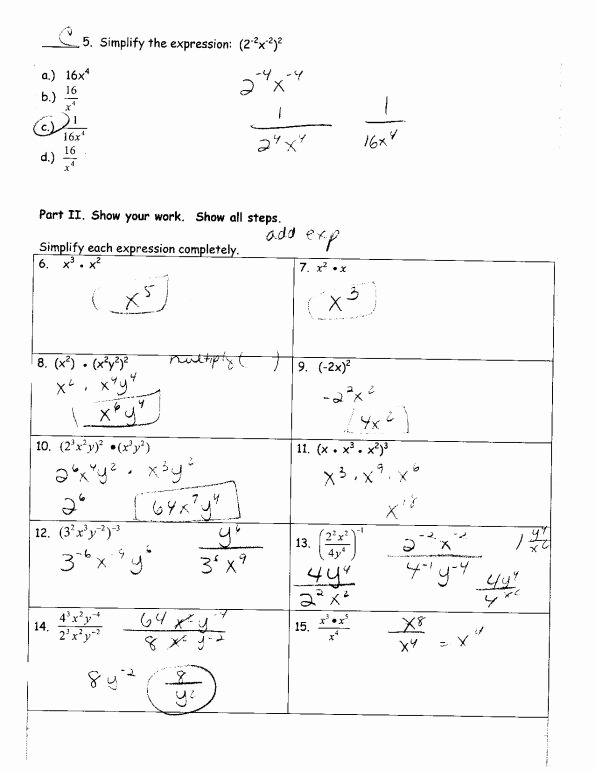 C 5. Simplify the expression: (2⁻²x⁻²)²
a.) 16x⁴
b.) 16/x⁴
c.) 1/16x⁴
d.) 16/x⁴
2⁻⁴x⁻⁴
1/2⁴x⁴ 1/16x⁴
Part II. Show your work. Show all steps.
add exp
Simplify each expression completely.
6. x³ • x²
x⁵
7. x² • x
x³
8. (x²) • (x²y²)² multiply ( )
x² · x⁴y⁴
x⁶y⁴
9. (-2x)²
-2²x²
4x²
10. (2³x²y)² •(x³y²)
2⁶x⁴y² · x³y²
2⁶ 64x⁷y⁴
11. (x • x³ • x²)³
x³ · x⁹ · x⁶
x¹⁸
12. (3²x³y⁻²)⁻³
3⁻⁶x⁻⁹y⁶ y⁶/3⁶x⁹
13. (2²x²/4y⁴)⁻¹ 2⁻²x⁻²/4⁻¹y⁻⁴ 1 y⁴/x²
4y⁴/2²x² 4y⁴/4x²
14. 4³x²y⁻⁴/2³x²y⁻² 64x²y⁻⁴/8x²y⁻²
8y⁻² 8/y²
15. x³•x⁵/x⁴ x⁸/x⁴ = x⁴